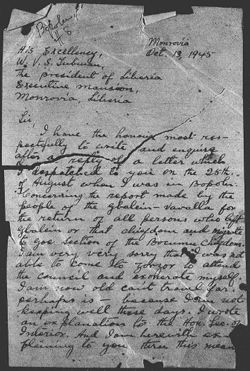 Bopolu,
Monrovia
Oct. 13, 1945
His Excellency,
W. V. S. Tubman,
The President of Liberia
Executive Mansion,
Monrovia, Liberia
Sir,
I have the honour most res-
pectfully to write and enquire
after a reply of a letter which
I despatched to you on the 25th.
August when I was in Bopolu.
Concerning the report made by the
people of the Gbalin Vanilla for
the return of all persons who left
Gbalin or that chiefdom and
to Section of the Chiefdom
I am very very sorry that I was not
able to come to to attend
the council and Honorable myself
I am now old cant travel far
perhaps is - because I am not
keeping well these days. I wrote
an explanation to the Hon. Sec. of
Interior. And I am herewith ex-
plaining to you thru this mean